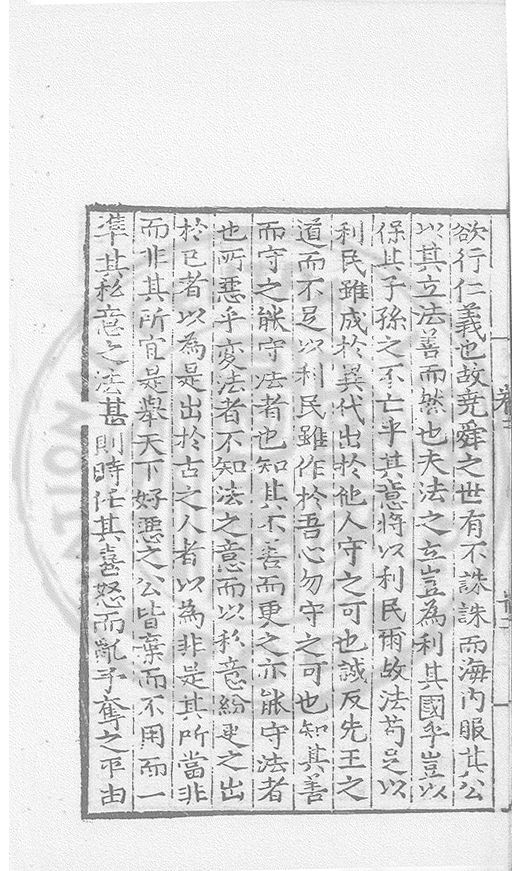 欲行仁義也故堯舜之世有不誅誅而海内服其公
以其立法善而然也夫法之立豈為利其國乎豈以
保其子孫之不亡乎其意將以利民爾故法苟足以
利民雖成於異代出於他人守之可也誠反先王之
道而不足以利民雖作於吾心勿守之可也知其善
而守之能守法者也知其不善而更之亦能守法者
也所惡乎變法者不知法之意而以私意紛更之出
於已者以為是出於古之人者以為非是其所當非
而非其所宜是舉天下好惡之公皆棄而不用而一
準其私意之法甚則時任其喜怒而亂予奪之平由